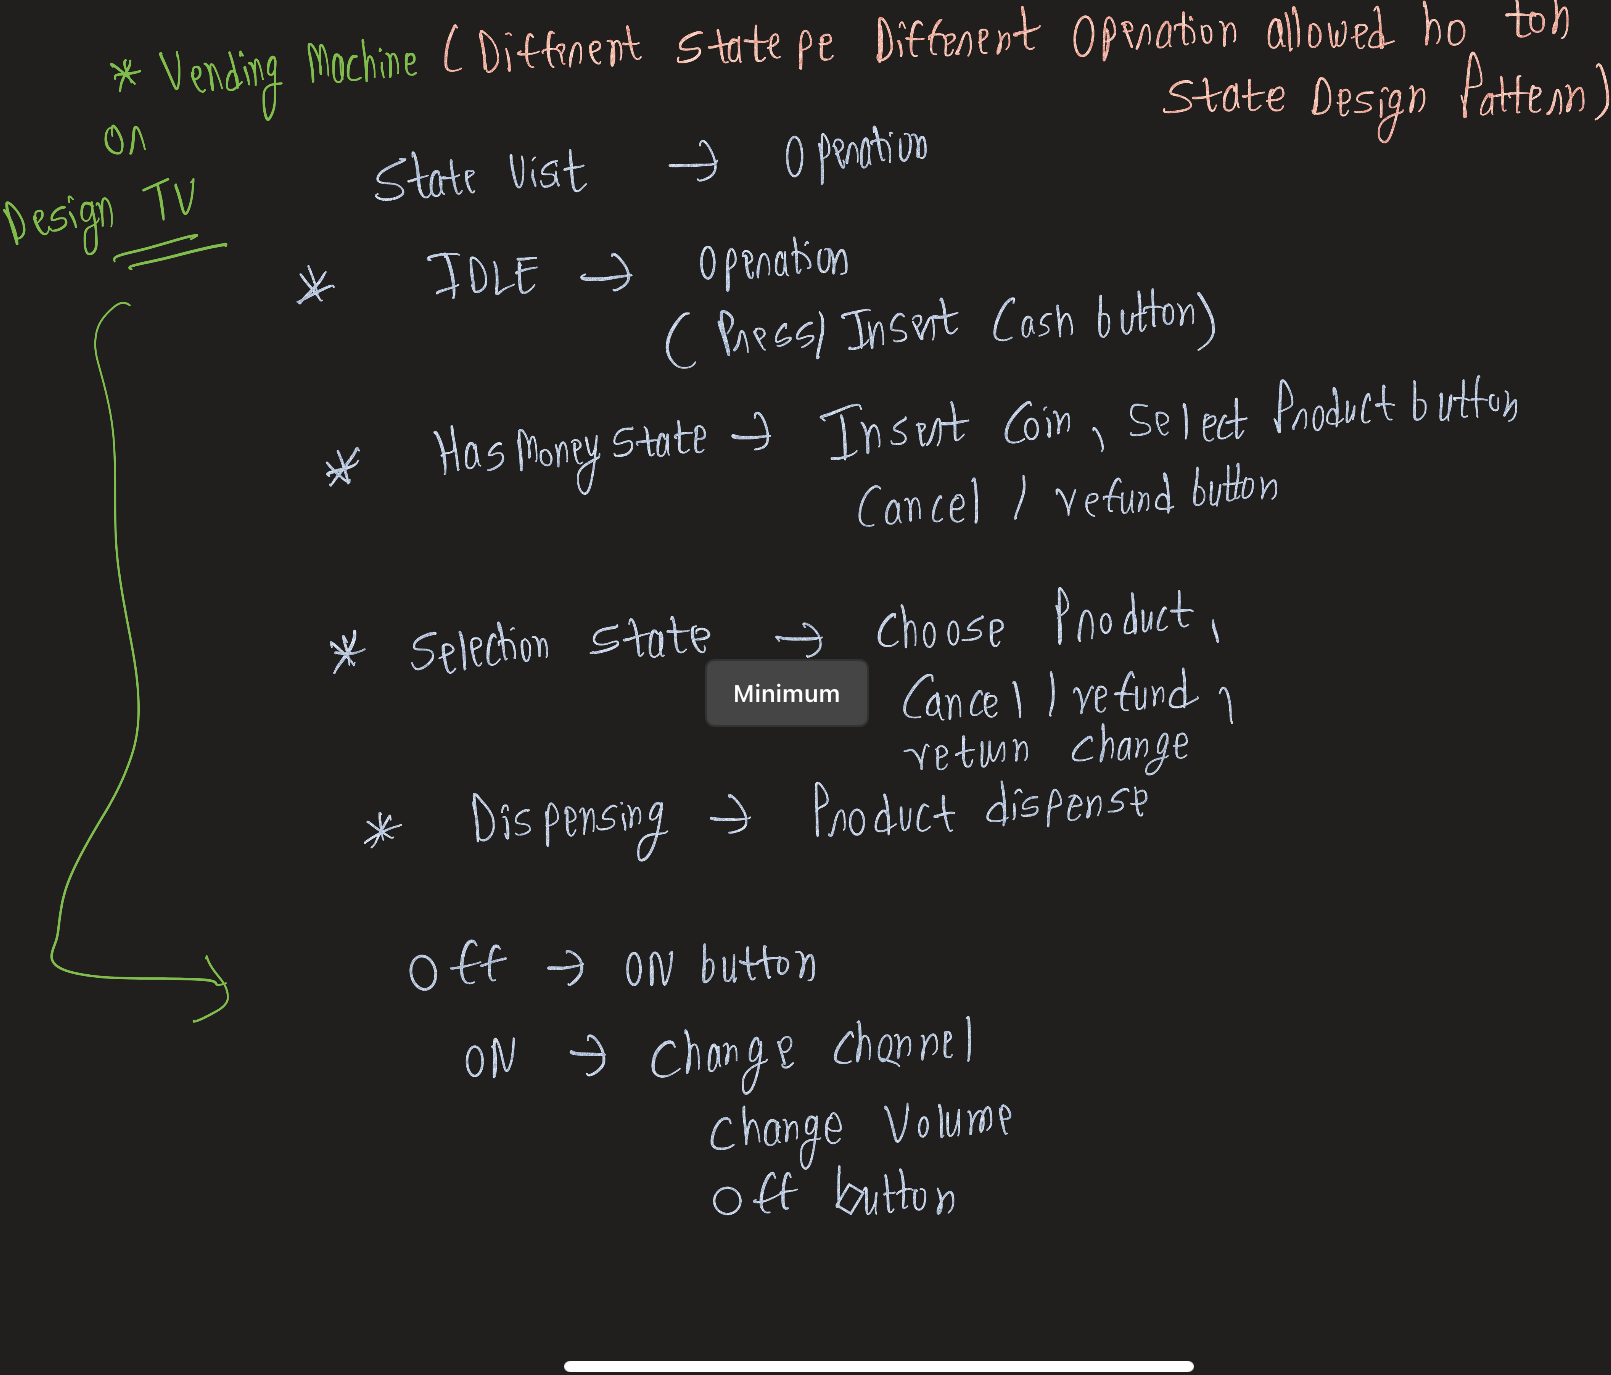 * Vending Machine (Different State pe Different Operation allowed ho toh
State Design Pattern)
or
Design TV
State Visit → Operation
* IDLE → Operation
(Press/Insert Cash button)
* Has Money State → Insert Coin, Select Product button
Cancel / refund button
* Selection State → Choose Product,
Minimum
Cancel / refund,
return change
* Dispensing → Product dispense
Off → ON button
ON → Change Channel
Change Volume
Off button